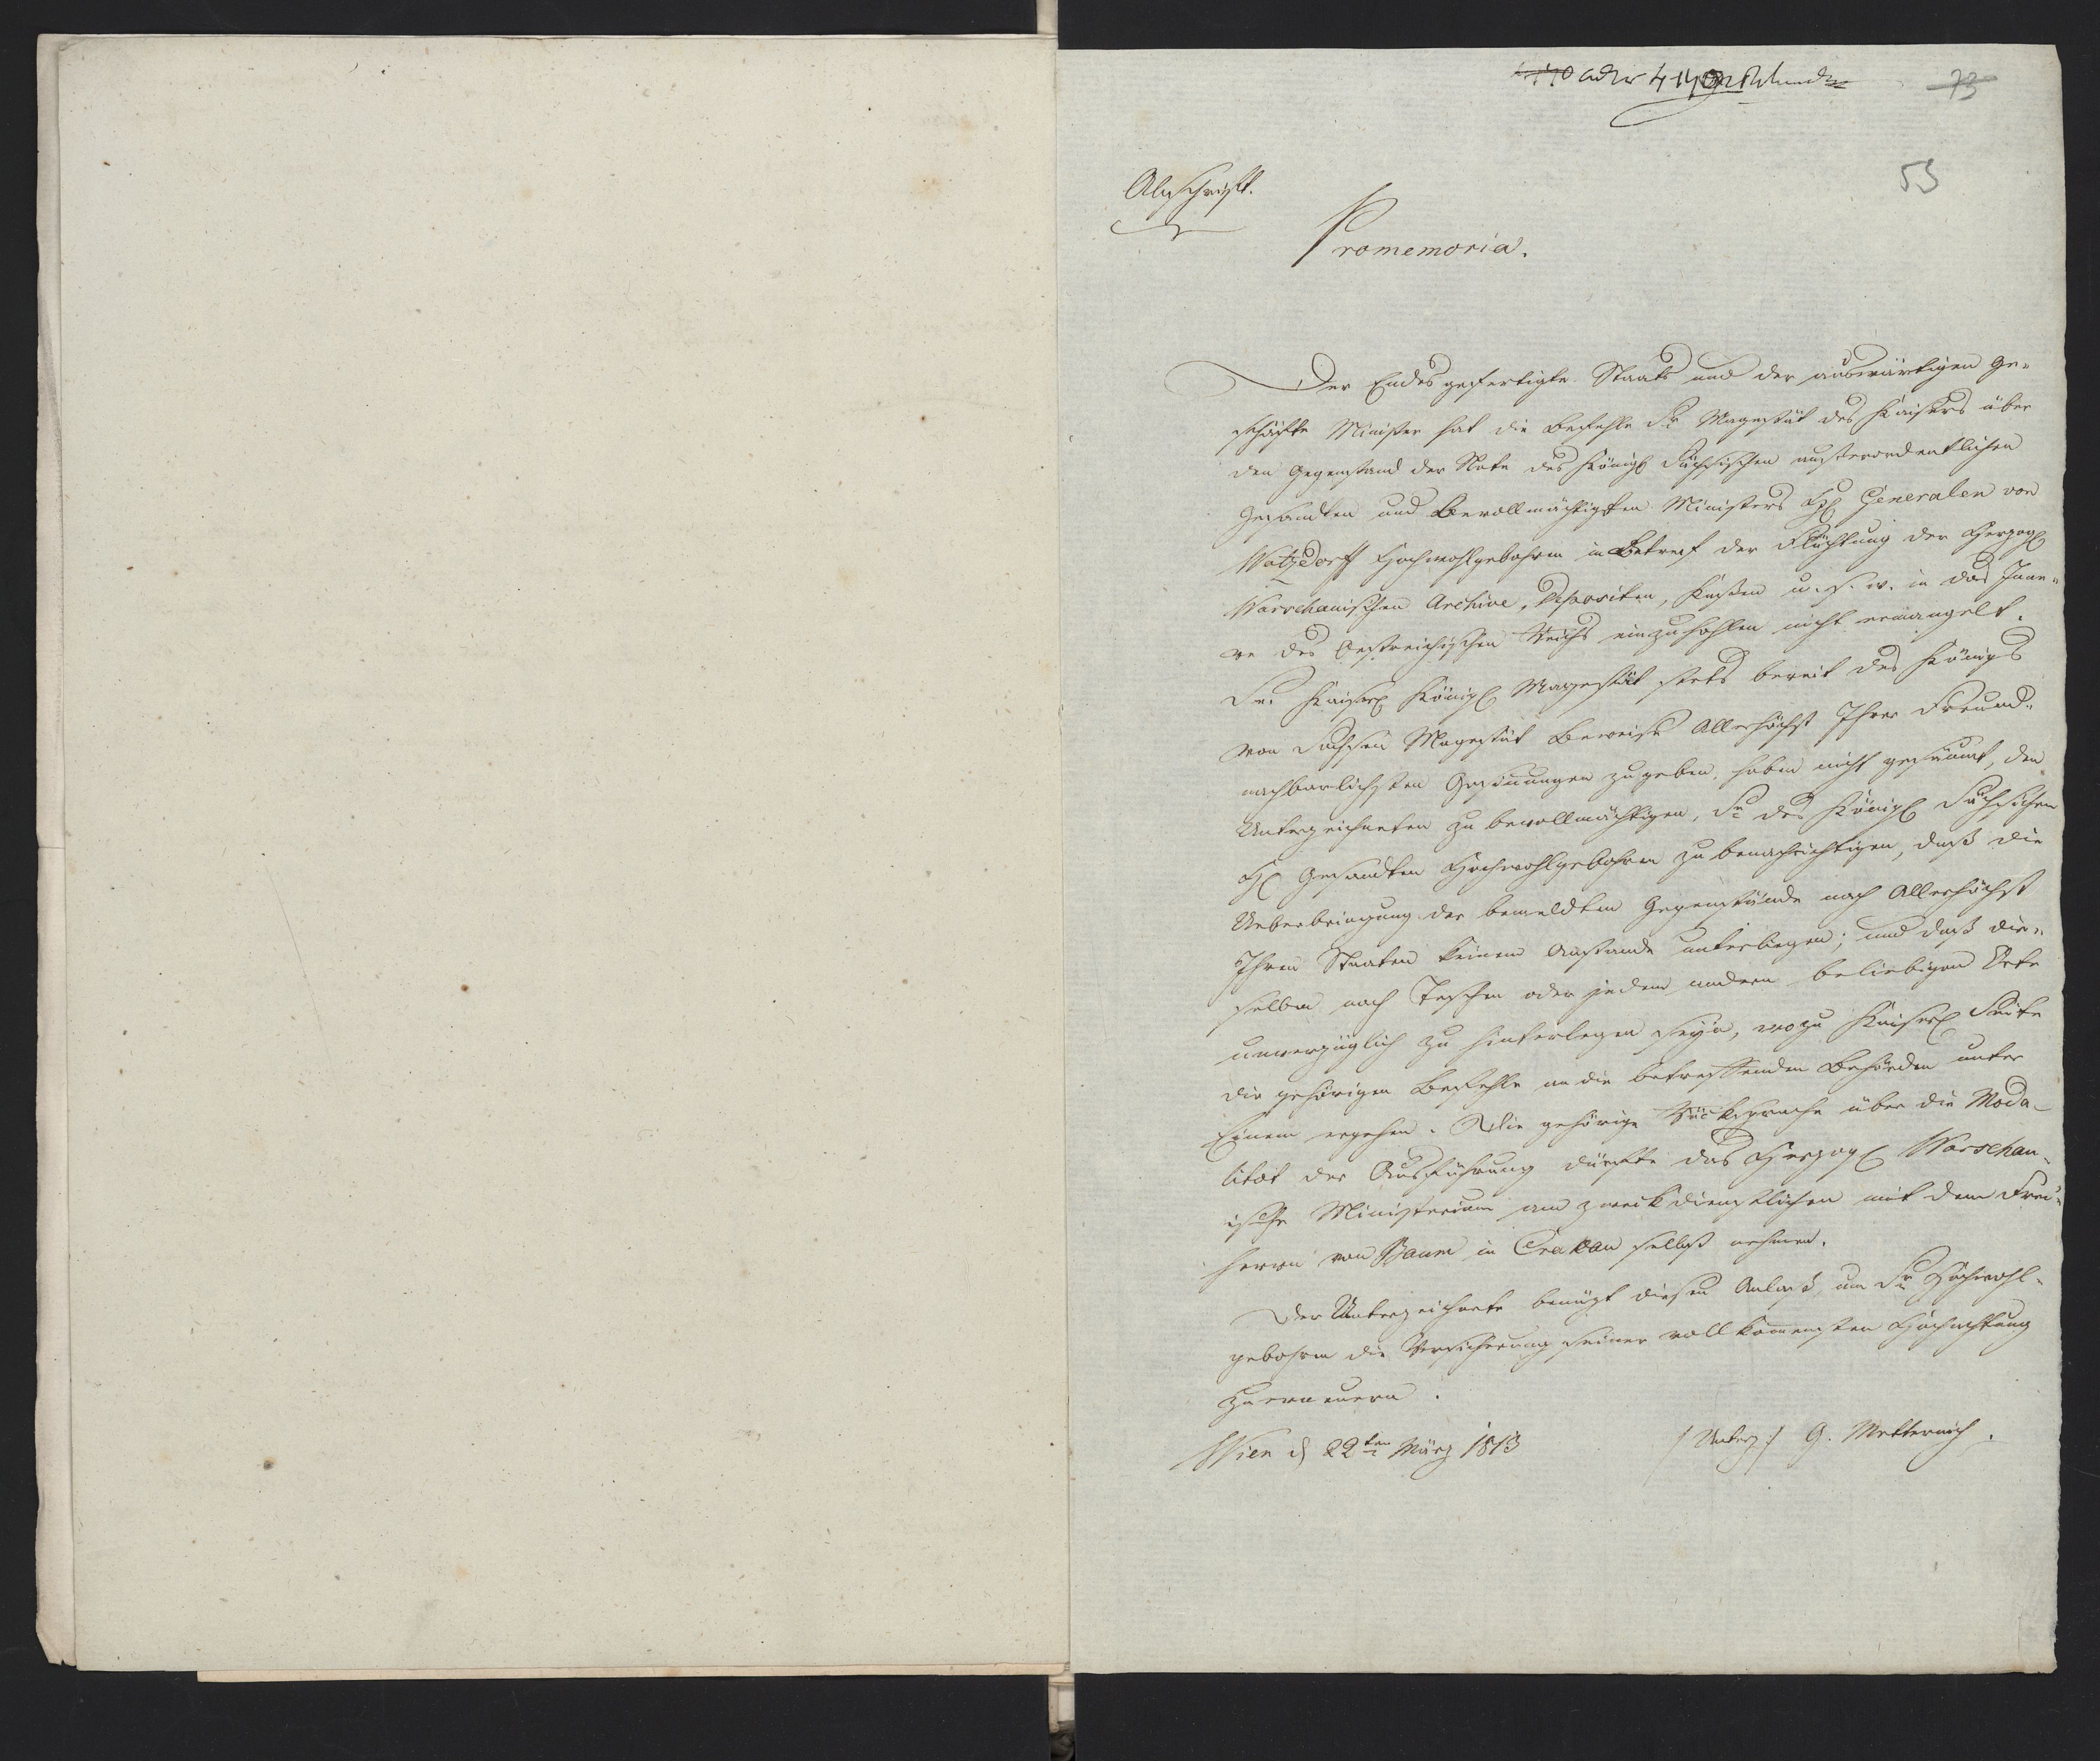 73
53
Abschrift.
Promemoria.
Der Endesgefertigte Staats und der auswärtigen Ge-
schäfte Minister hat die Befehle Sr Magestät des Kaisers über
den Gegenstand der Note des Königl Sächsischen ausserordentlichen
Gesandten und Bevollmächtigten Ministers H Generalen von
Watzdorff Hochwohlgebohren in Betreff der Flüchtung der Herzogl
Warschauischen Archive, Depositen, Kassen u. s. w. in das Inne-
re des Oestreichischen Reichs einzuhohlen nicht ermangelt.
Se. Kaiserl Königl Magestät stets bereit des Königs
von Sachsen Magestät Beweise Allerhöchst Ihrer Freund-
nachbarlichsten Gesinnungen zu geben, haben nicht gesäumt, den
Unterzeichneten zu bevollmächtigen, Sr des Königl Sächsischen
H Gesandten Hochwohlgebohren zu benachrichtigen, daß die
Ueberbringung der bemeldten Gegenstände nach Allerhöchst
Ihren Staaten keinem Anstande unterliegen; und daß die-
selben nach Teschen oder jedem andern beliebigen Orte
unverzüglich zu hinterlegen seyn, wozu Kaiserl Seits
die gehörigen Befehle an die betreffenden Behörden unter
Einem ergehen. Die gehörige Rücksprache über die Moda-
litat der Ausführung dürfte das Herzogl Warschau-
ische Ministerium am zweckdienstlichen mit dem Frei-
herrn von Baum in Crakau selbst nehmen.
Der Unterzeichnete benützt diesen Anlaß, um Sr Hochwohl-
gebohren die Versicherung seiner vollkommensten Hochachtung
zu erneuern.
Wien d 22ten März 1813 /:Unterz:/ G. Metternich.